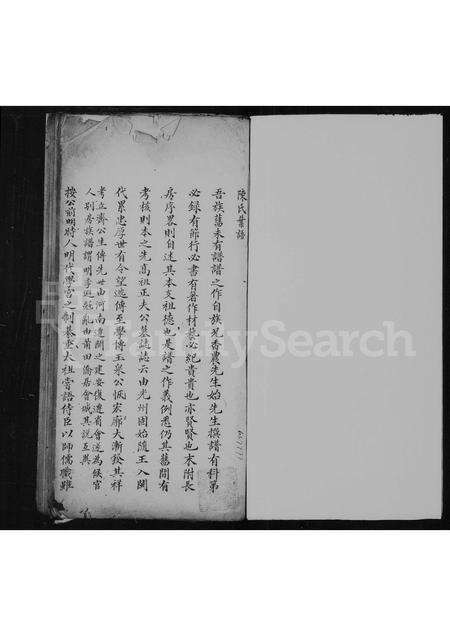 陳氏業譜
吾族舊未有譜譜之作自族兄香農先生始先生撰譜有科第
必錄有節行必書有著作材藝必紀貴貴也亦賢賢也末附長
房序畧則自述其本支祖德也是譜之作義例悉仍其舊間有
考核則本之先高祖正夫公墓誌誌云由光州固始隨王入閩
代累忠厚世有令望遞傳至學博玉泉公恢宏廓大漸發其祥
考立齋公生傳先世由河南遷閩之建安復遷省會遂為候官
人別房族譜謂明季避亂由莆田僑居會城其說互異
按公前明時人明代學宮之制綦重太祖嘗語侍臣以師儒職雖
FamilySearch